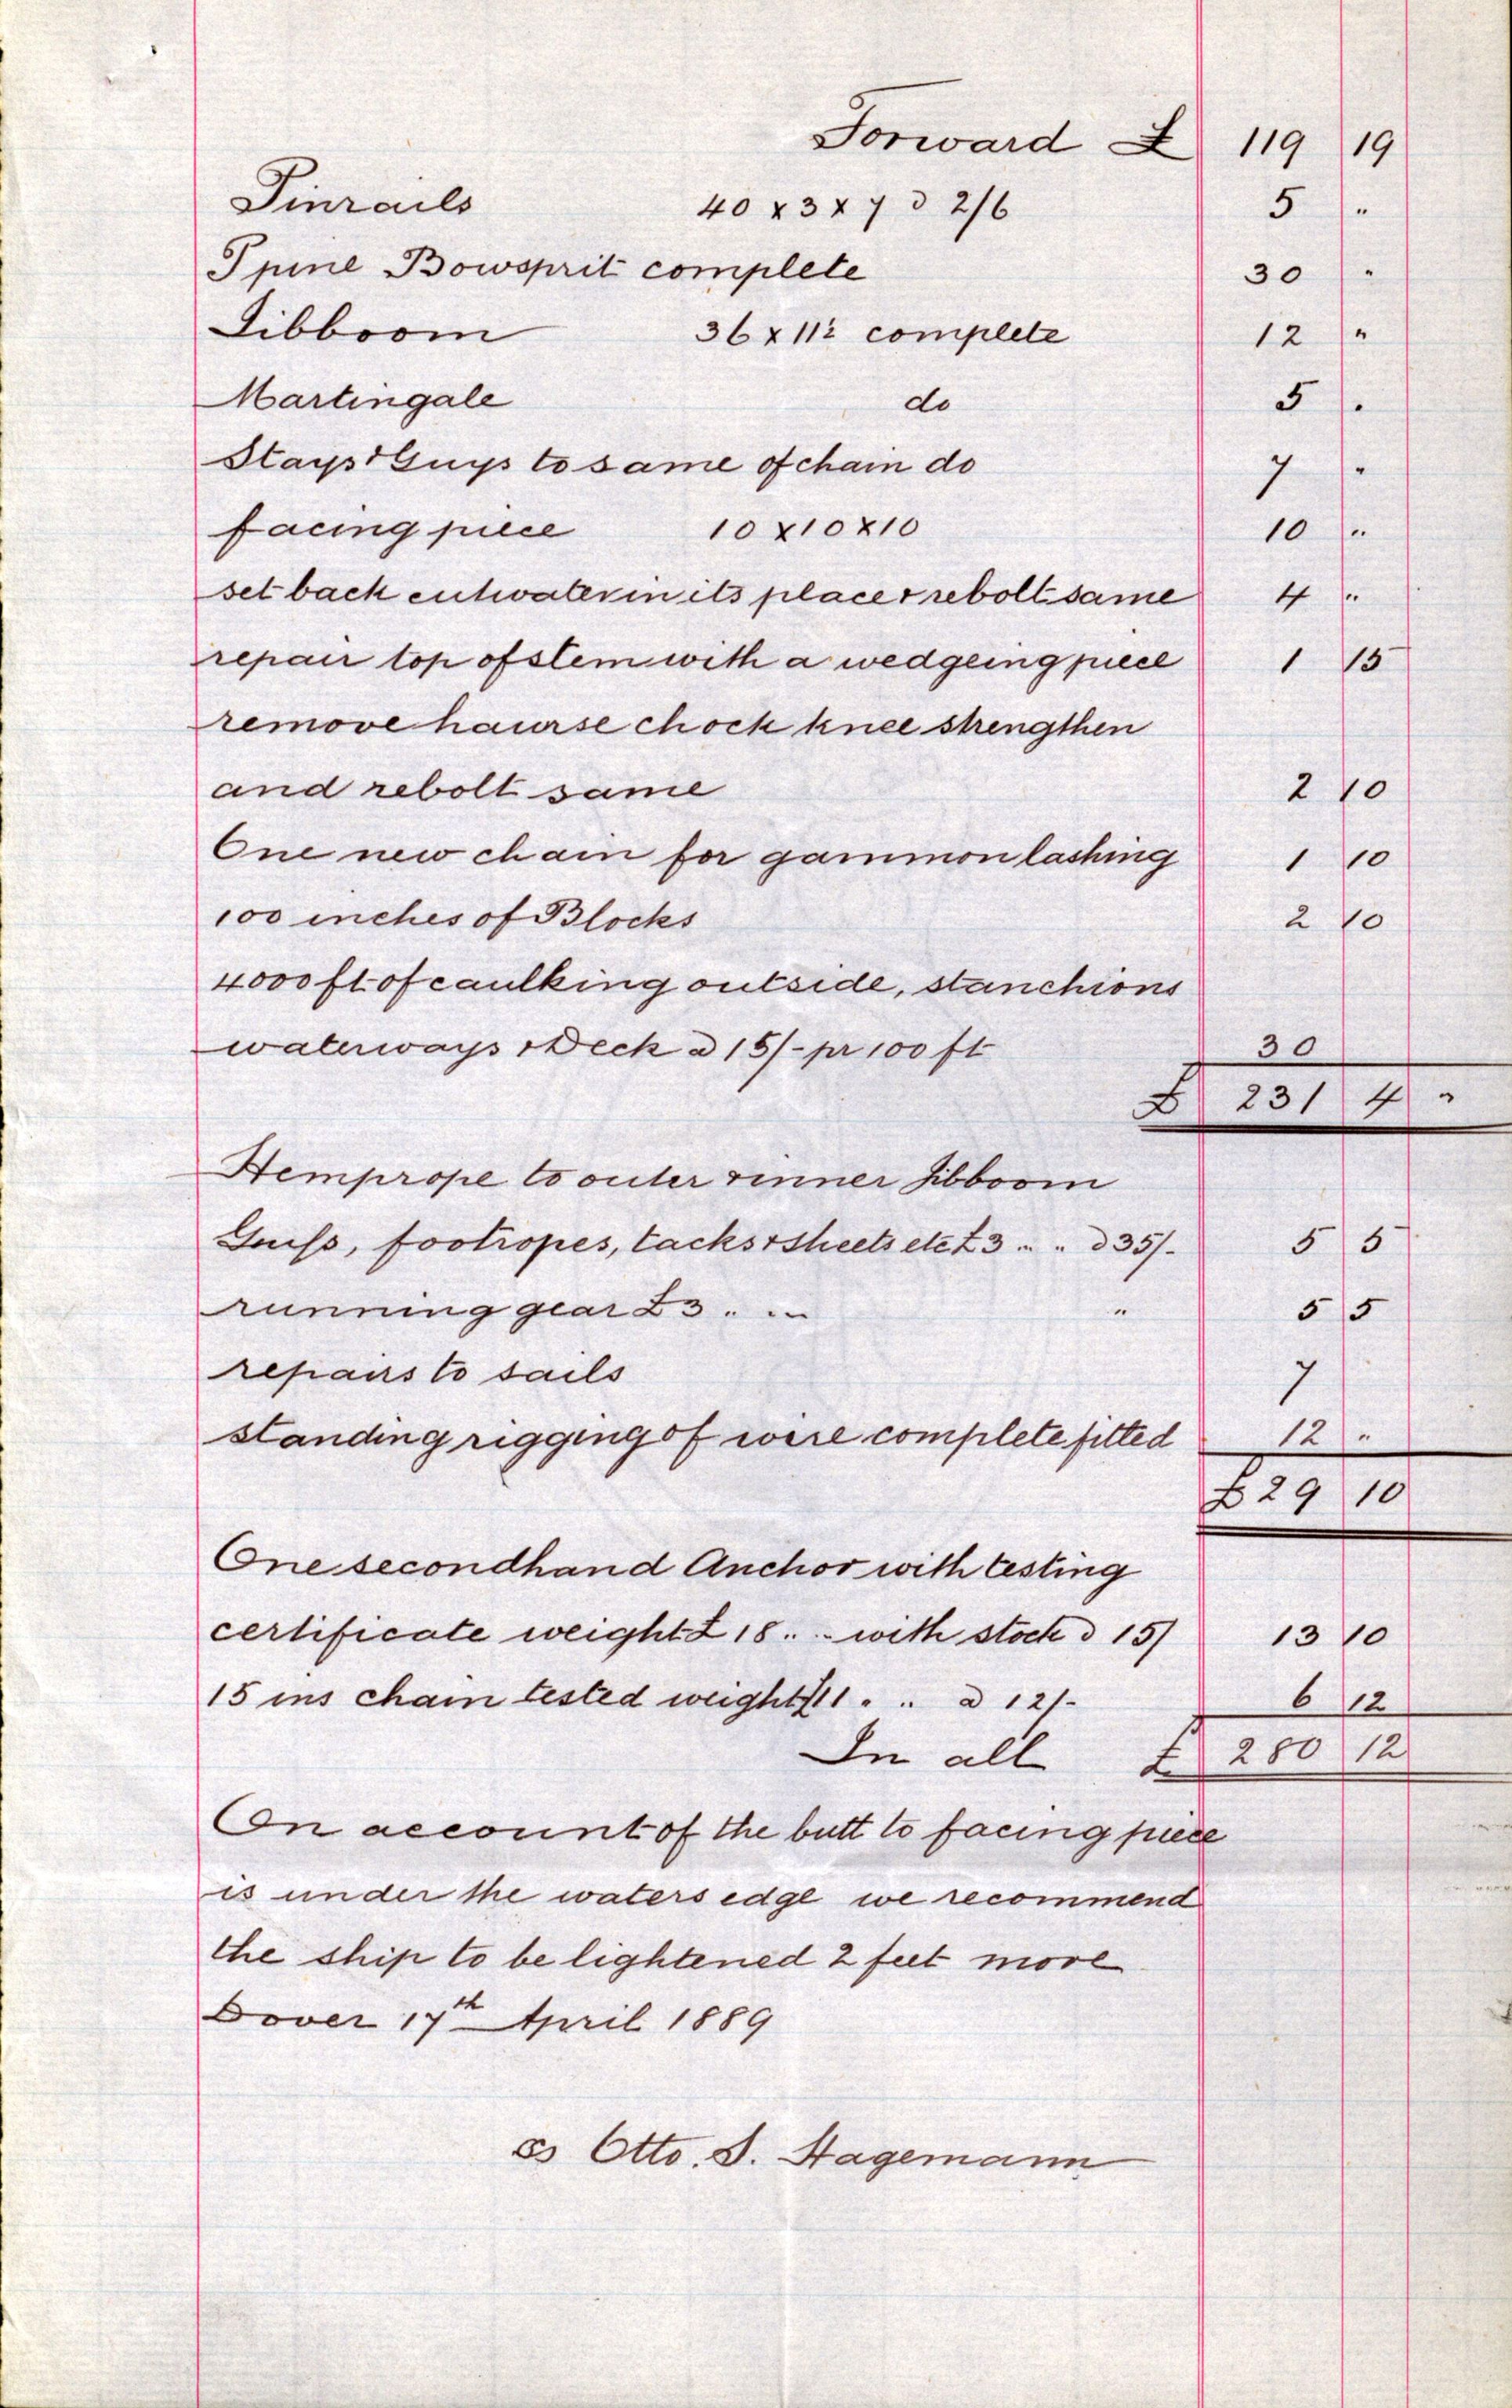 Forward £ 119 19
Pinrails 40 x 3 x 7 @ 2/6 5 "
Ppine Bowsprit complete 30 "
Jibboom 36 x 11½ complete 12 "
Martingale do 5 "
Stays & Guys to same of chain do 7 "
facing piece 10 x 10 x 10 10 "
set back cutwater in its place & rebolt same 4 "
repair top of stem with a wedgeing piece 1 15
remove haurse chock knee strengthen
and rebolt same 2 10
One new chain for gammon lashing 1 10
100 inches of Blocks 2 10
4000 ft of caulking outside, stanchions
waterways & Deck @ 15/- pr 100 ft 30
£ 231 4 "
Hemprope to outer & inner Jibboom
Guiss, footropes, tacks & sheets etc £ 3 " " @ 35/- 5 5
running gear £ 3 " " " 5 5
repairs to sails 7
standing rigging of wire complete fitted 12 "
£ 29 10
One secondhand Anchor with testing
certificate weight £ 18 " " with stock @ 15/ 13 10
15 ins chain tested weight 11 " " @ 12/- 6 12
In all £ 280 12
On account of the butt to facing piece
is under the waters edge we recommend
the ship to be lightened 2 feet more
Dover 17th April 1889
Otto. S. Hagemann